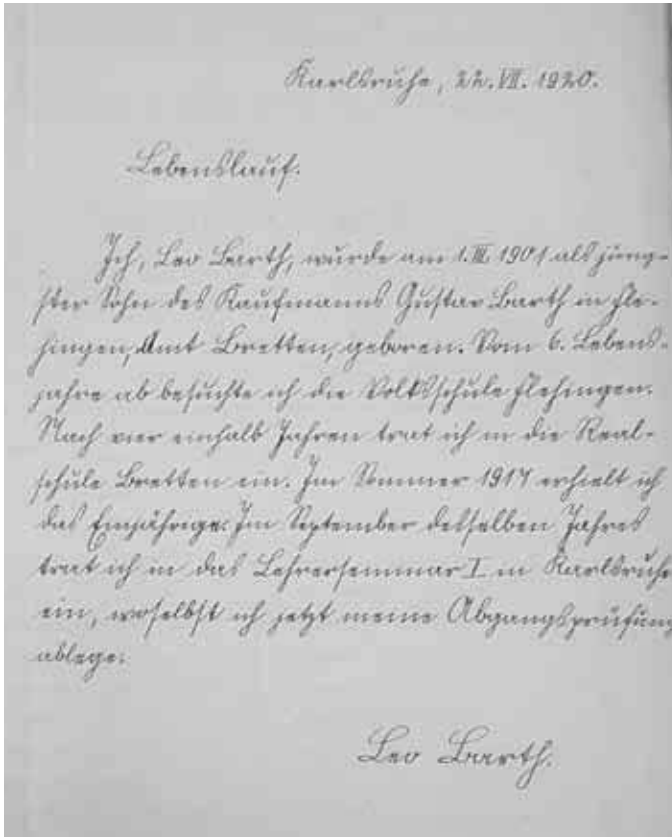 Karlsruhe, 22. VII. 1920.
Lebenslauf.
Ich, Leo Barth, wurde am 1. III. 1901 als jüng-
ster Sohn des Kaufmanns Gustav Barth in Fle-
hingen, Amt Bretten, geboren. Vom 6. Lebens-
jahre ab besuchte ich die Volksschule Flehingen.
Nach vier einhalb Jahren trat ich in die Real-
schule Bretten ein. Im Sommer 1917 erhielt ich
das Einjährige. Im September desselben Jahres
trat ich in das Lehrerseminar I in Karlsruhe
ein, woselbst ich jetzt meine Abgangsprüfung
ablege.
Leo Barth.